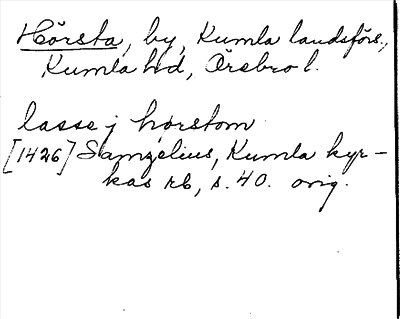 Hörsta, by, Kumla landsförs.,
Kumla hd, Örebro l.
lasse j horstom
[1426] Samzelius, Kumla kyr-
kas rb, s. 40. orig.